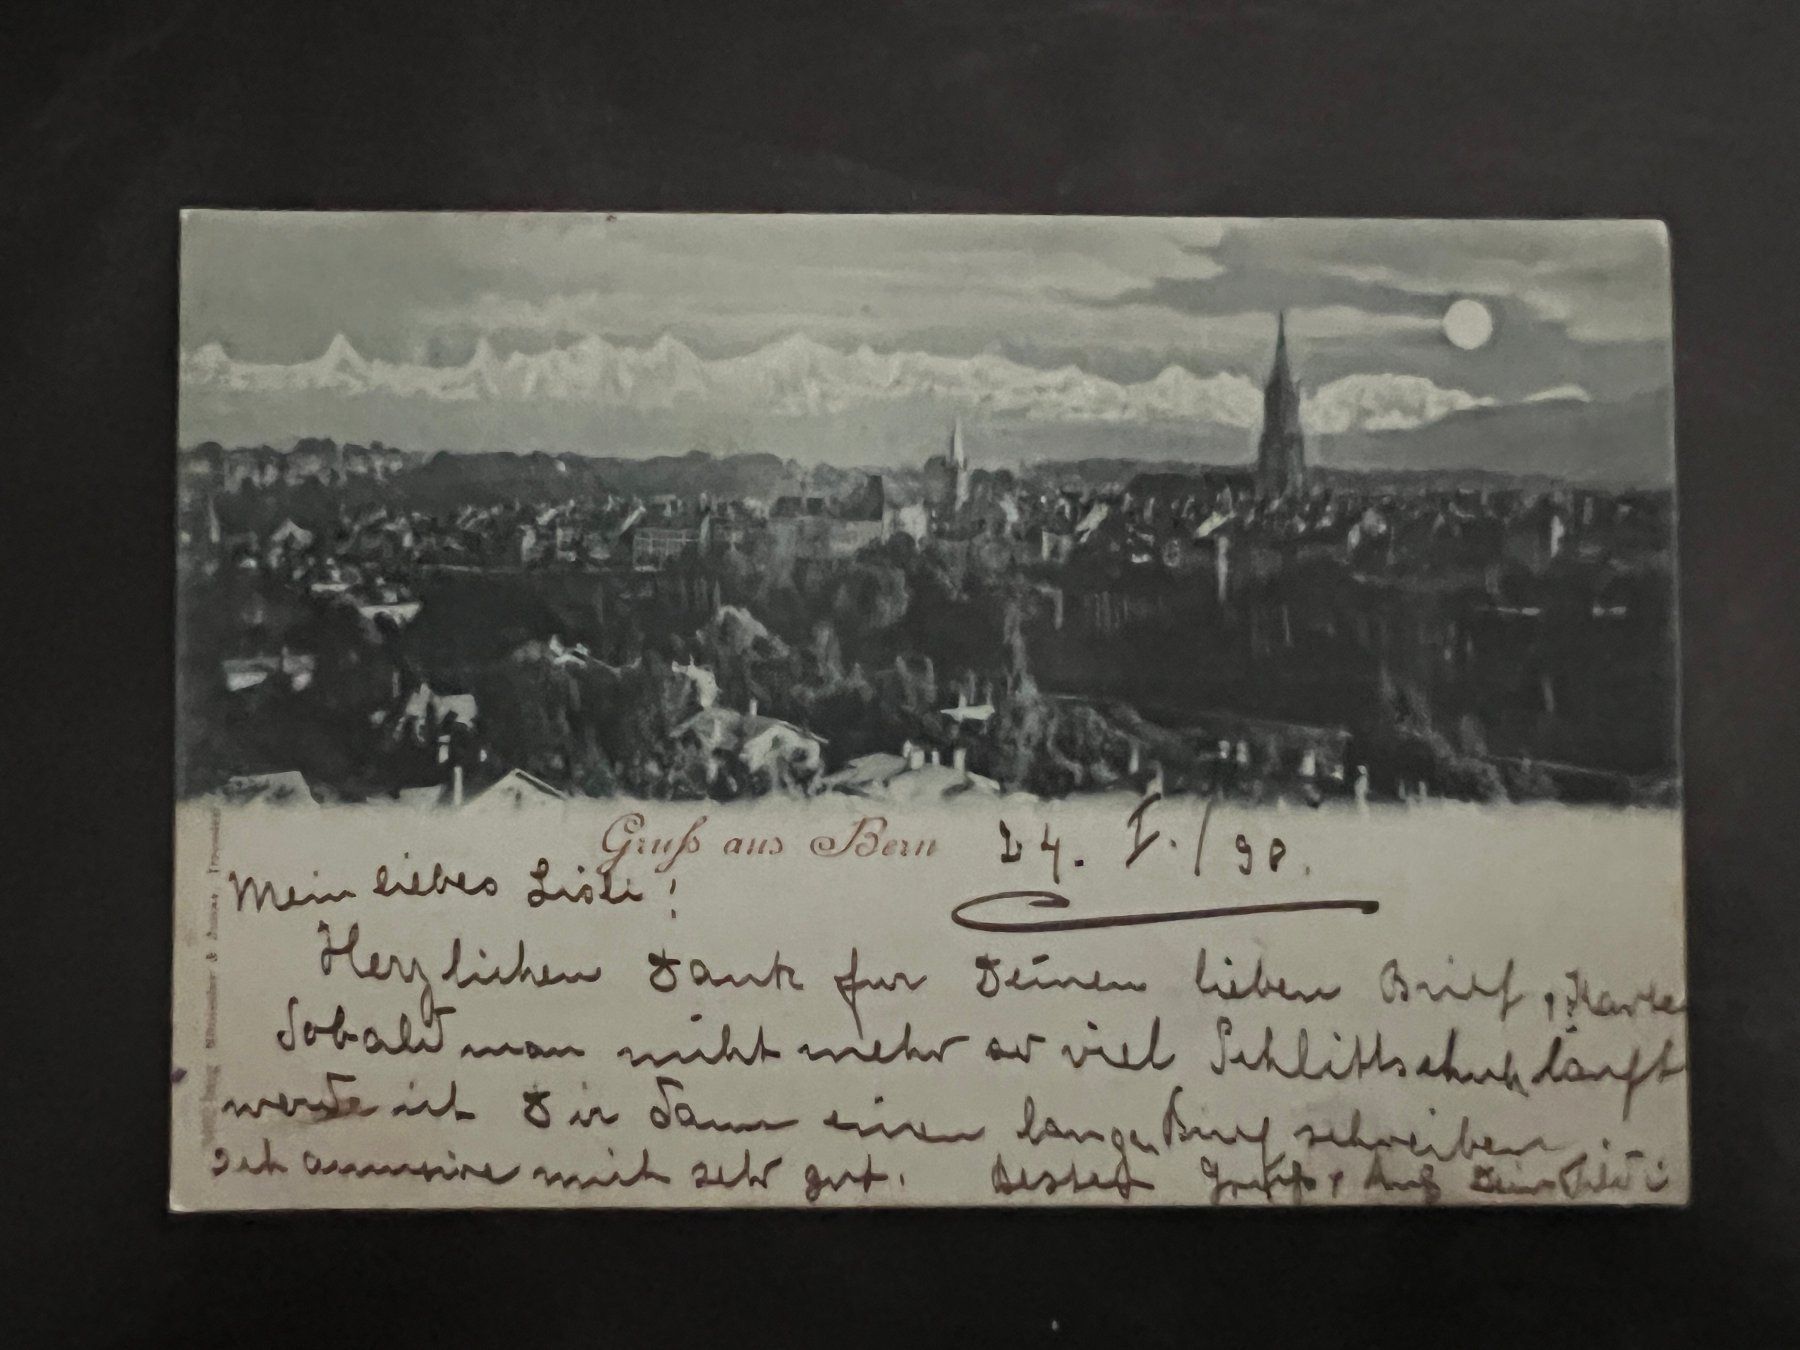 Gruß aus Bern
24. I. / 98.
Mein liebes Lisli!
Herzlichen Dank für Deinen lieben Brief, Karte
Sobald man nicht mehr so viel Schlittschuh läuft
werde ich Dir dann einen langen Brief schreiben
ich amüsire mich sehr gut. Besten Gruß, Kuß Dein